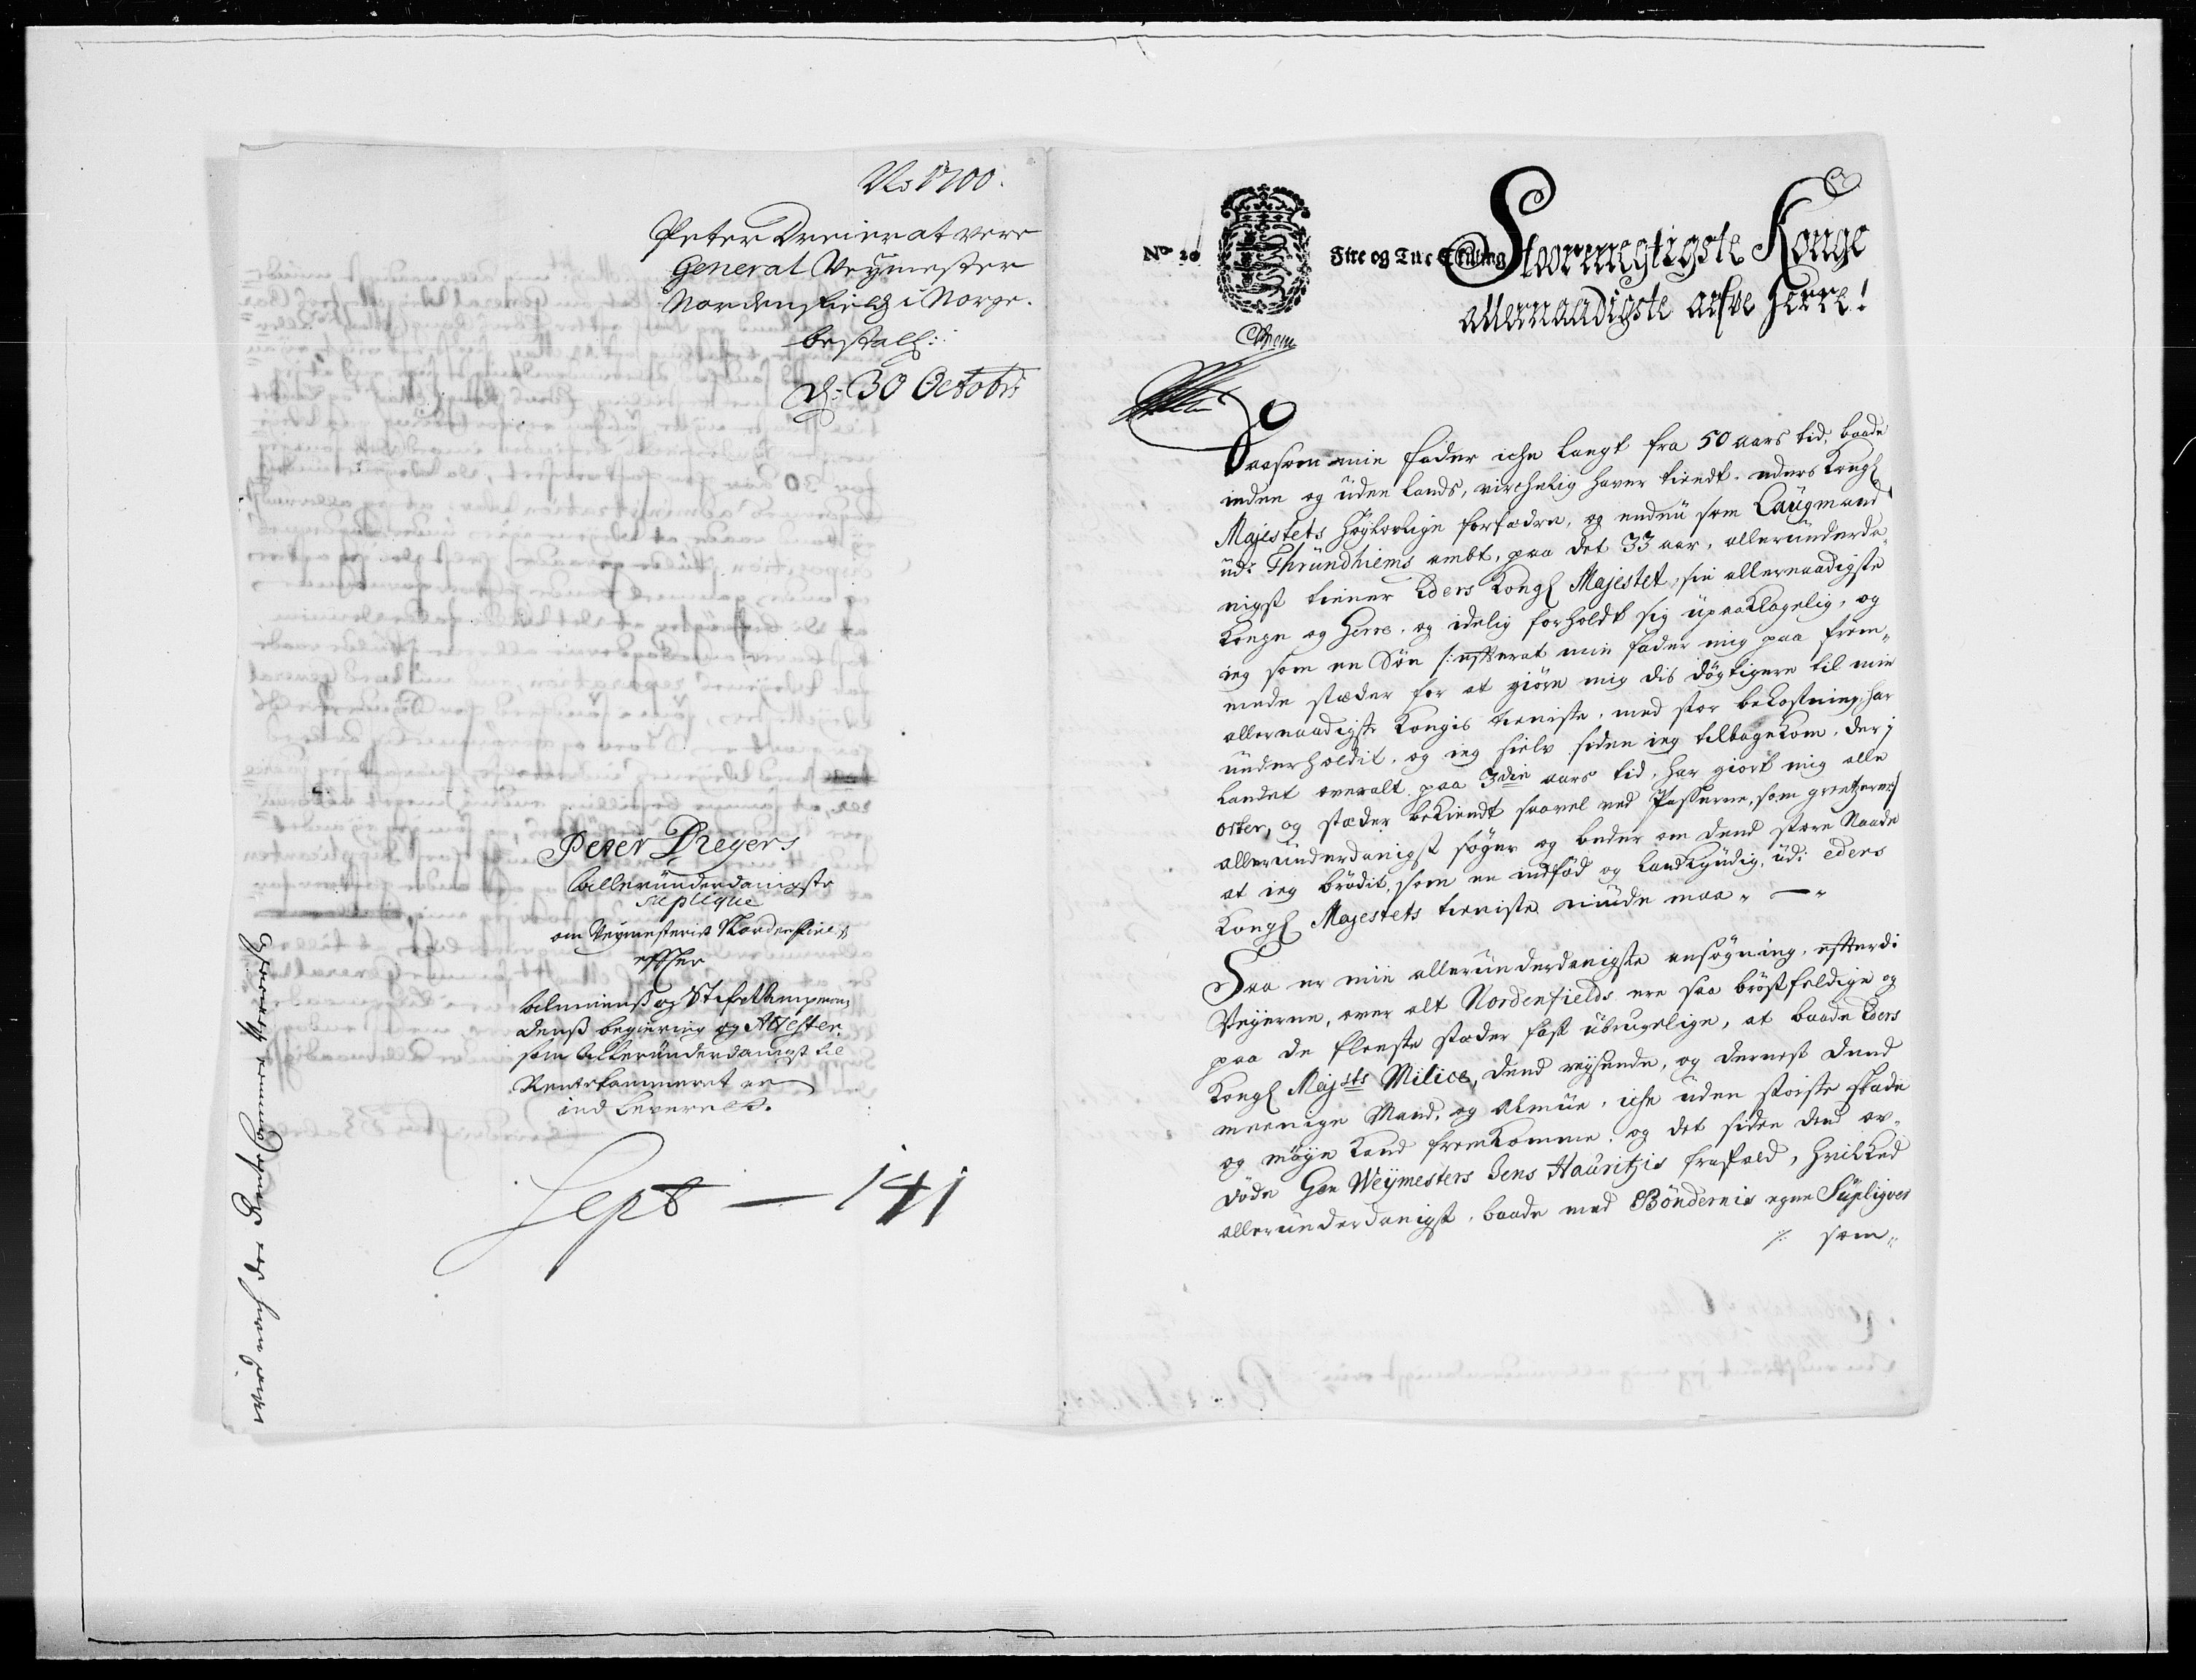 1700.
Peter Dreier at vere
General Veymester
Nordenfields i Norge.
bestall:
d: 30 Octobr:
Peter Dreyers
allerunderdanigste
suplique
om Veymesteriet Nordenfields
effter
almuens og Stifft Ampman,
dens begiering og Attester,
som allerunderdanigst til
Rentekammeret er
ind leveret.
Sept — 141
No 20
Fire og Tive Skilling
Stoormegtigste Konge
allernaadigste arfve Herre!
Saasom min fader iche langt fra 50 aars tid, baade
inden og uden Lands, virchelig haver tiendt eders Kongl
Majestets høylovlige forfædre, og endnu som Laugmand
udi Thrundhiems ambt, paa det 33 aar, allerunderda,,
nigst tiener Eders Kongl Majestet, sin allernaadigste
Konge og Herre, og idelig forholdt sig upaaklagelig, og
ieg som en Søn /: efftterat min fader mig paa frem,,
mede stæder for at giøre mig dis døgtigere til min
allernaadigste Kongis tieniste, med stor bekostning har
underholdit, og ieg sielv siden ieg tilbagekom, der i
Landet overalt paa 3die aars tid, har giort mig alle
orter, og stæder bekiendt saavel ved Passerne, som grentzerne:/
allerunderdanigst søger og beder om dend store Naade
at ieg brødit, som en indfød og landkyndig, udi eders
Kongl Majestets tieniste niude maa " — "
Saa er min allerunderdanigste ansøgning, effterdi
Veyerne, over alt Nordenfields ere saa brøstfeldige og
paa de fleeste stæder fast ubrugelige, at baade Eders
Kongl Majsts Milice, dend reysende, og dernest dend
meenige Mand, og almue, iche uden storste skade
og møye kand fremkomme, og det siden dend av,,
døde Gen Weymesters Jens Hauritzis frafald, hvilked
allerunderdanigst, baade med Bøndernis egne Supliqver
./. som,,